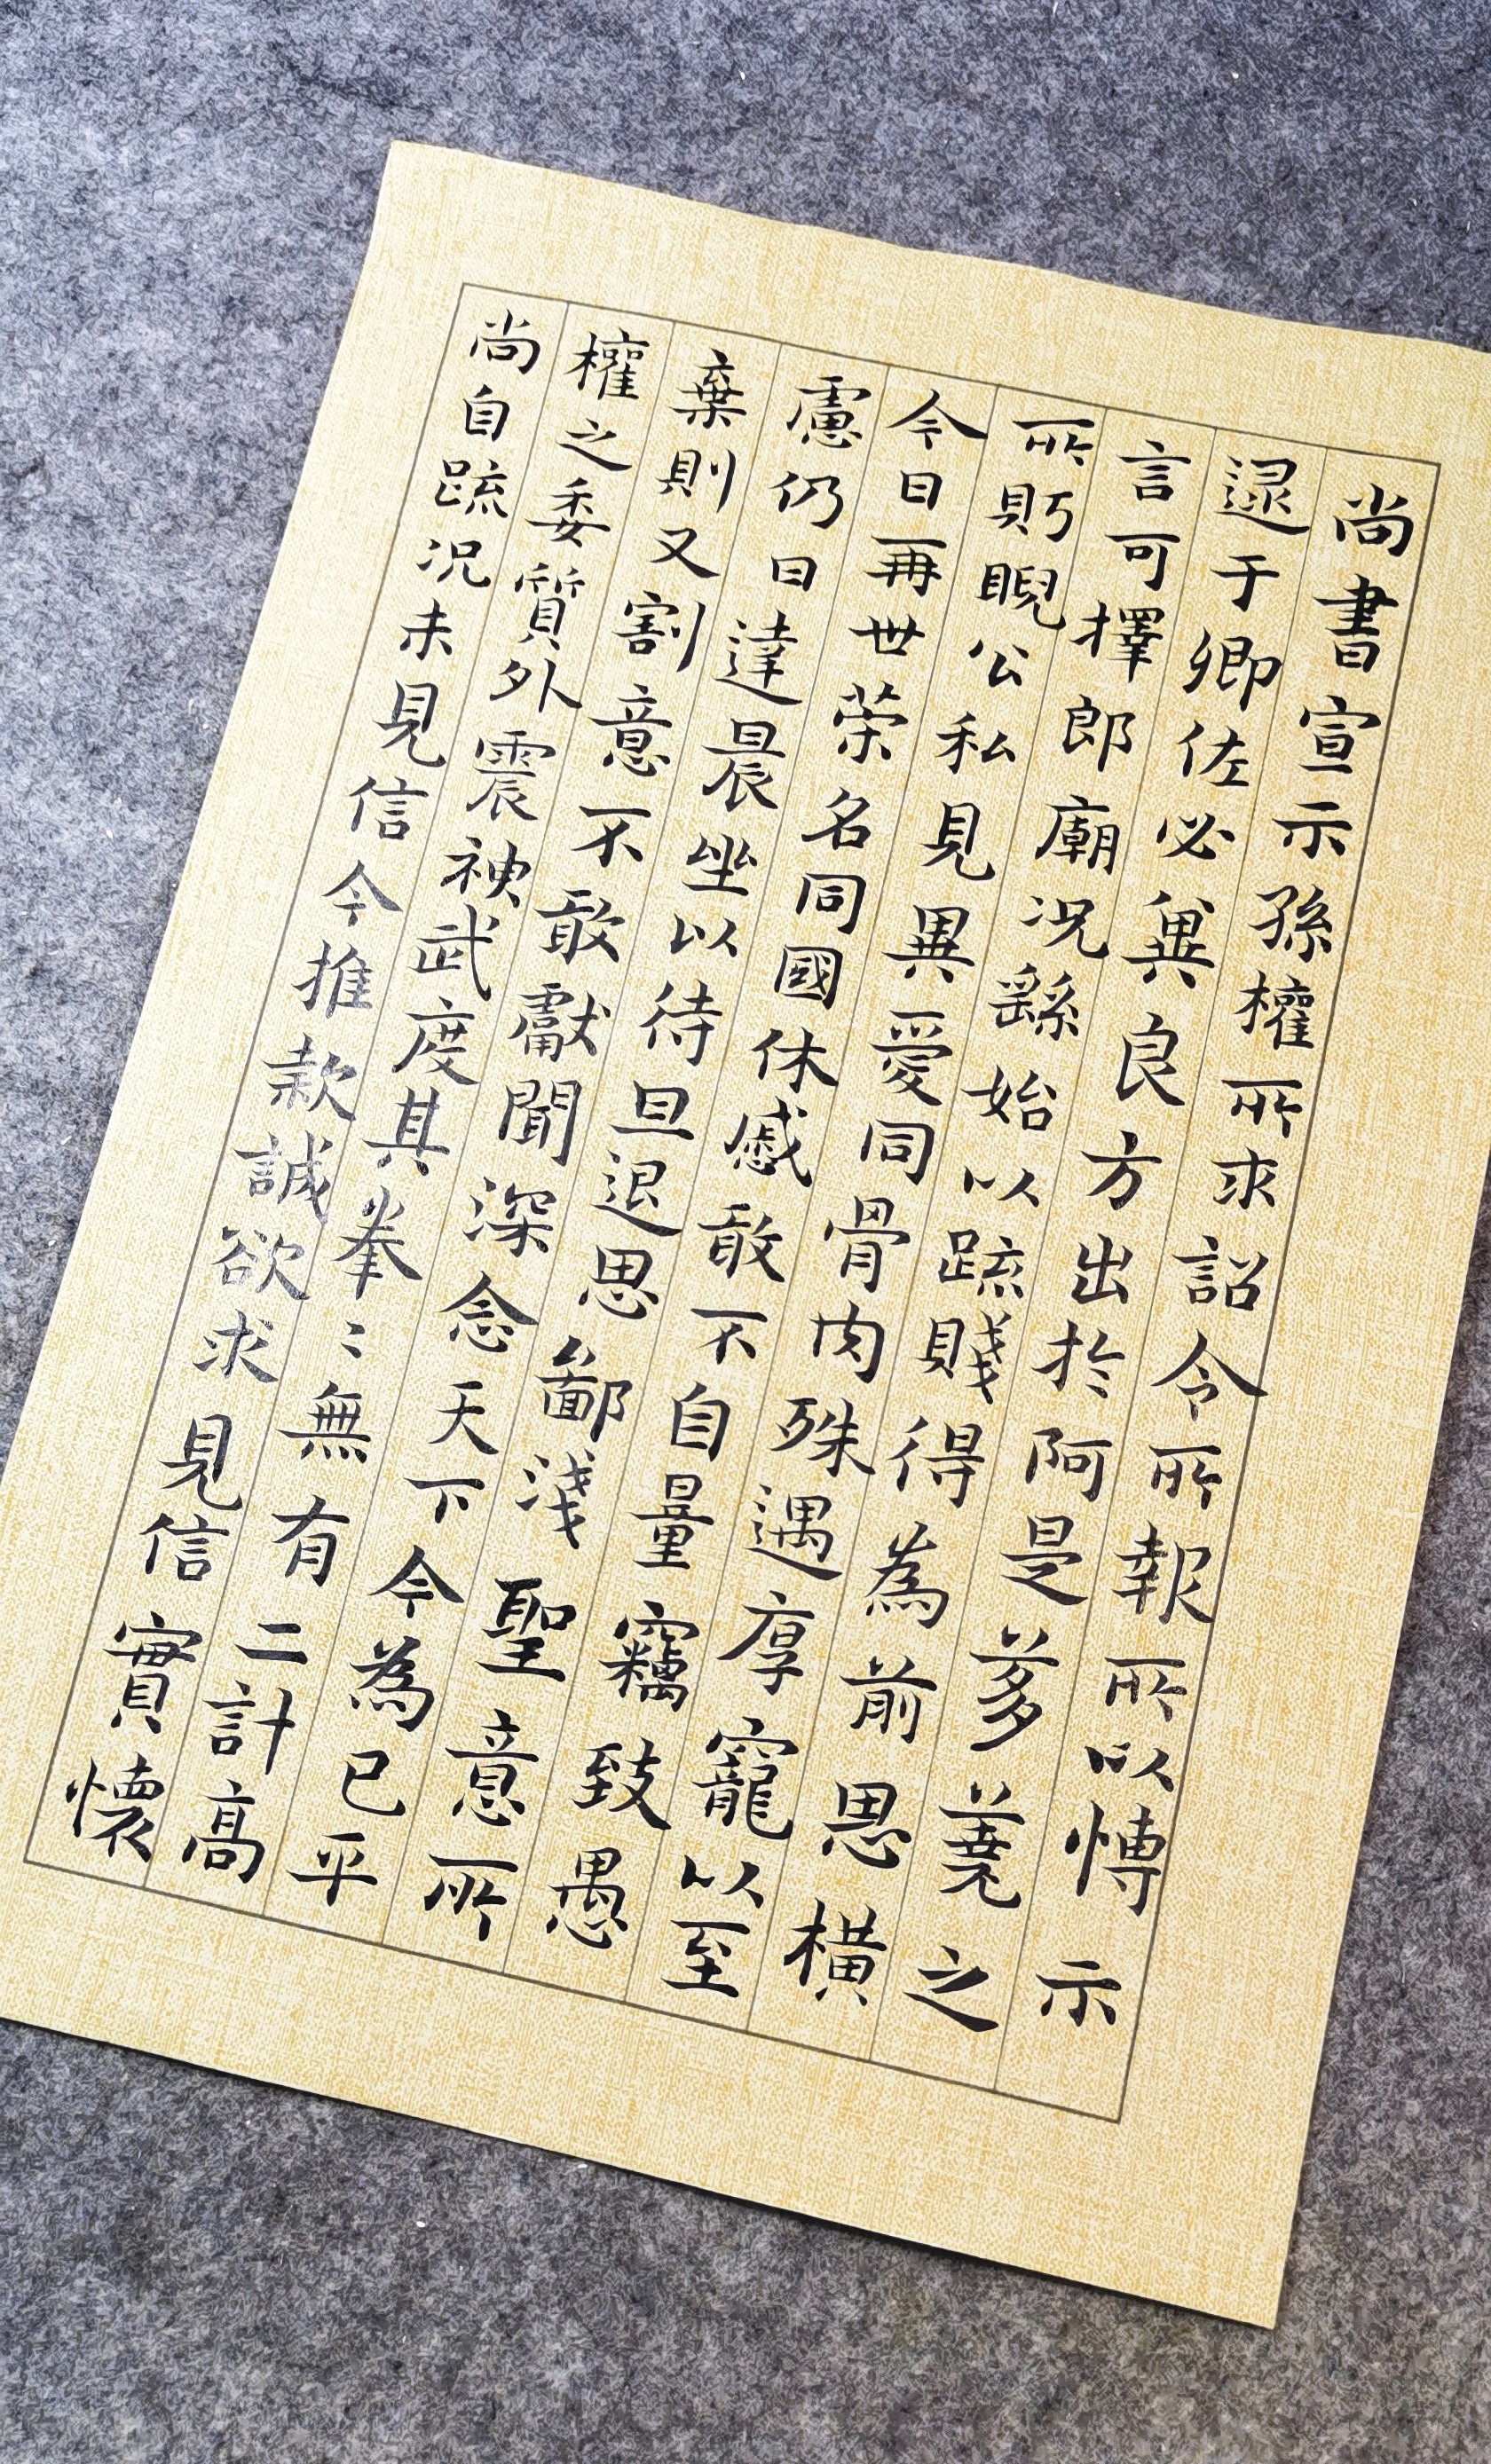 尚書宣示孫權所求詔令所報所以愽示
逮于卿佐必冀良方出於阿是芻蕘之
言可擇郎廟況繇始以疏賤得為前恩橫
所眄睨公私見異愛同骨肉殊遇厚寵以至
今日再世荣名同國休慼敢不自量竊致愚
慮仍日達晨坐以待旦退思鄙淺聖意所
棄則又割意不敢獻聞深念天下今為已平
權之委質外震神武度其拳〻無有二計高
尚自疏況未見信今推款誠欲求見信實懷